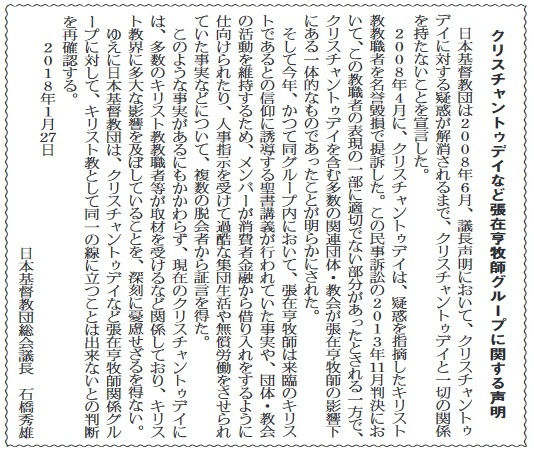 クリスチャントゥデイなど張在亨牧師グループに関する声明
日本基督教団は2008年6月、議長声明において、クリスチャントゥ
デイに対する疑惑が解消されるまで、クリスチャントゥデイと一切の関係
を持たないことを宣言した。
2008年4月に、クリスチャントゥデイは、疑惑を指摘したキリスト
教教職者を名誉毀損で提訴した。この民事訴訟の2013年11月判決にお
いて、この教職者の表現の一部に適切でない部分があったとされる一方で、
クリスチャントゥデイを含む多数の関連団体・教会が張在亨牧師の影響下
にある一体的なものであったことが明らかにされた。
そして今年、かつて同グループ内において、張在亨牧師は来臨のキリス
トであるとの信仰に誘導する聖書講義が行われていた事実や、団体・教会
の活動を維持するため、メンバーが消費者金融から借り入れをするように
仕向けられたり、人事指示を受けて過酷な集団生活や無償労働をさせられ
ていた事実などについて、複数の脱会者から証言を得た。
このような事実があるにもかかわらず、現在のクリスチャントゥデイに
は、多数のキリスト教教職者等が取材を受けるなど関係しており、キリス
ト教界に多大な影響を及ぼしていることを、深刻に憂慮せざるを得ない。
ゆえに日本基督教団は、クリスチャントゥデイなど張在亨牧師関係グル
ープに対して、キリスト教として同一の線に立つことは出来ないとの判断
を再確認する。
2018年1月27日
日本基督教団総会議長 石橋秀雄